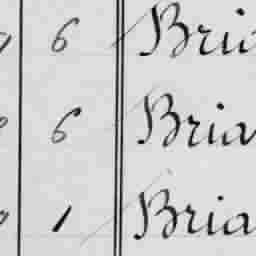 6 Bria
6 Bria
1 Bria